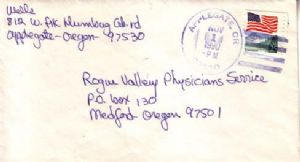 Wells
812 W. Frk Humbug Crk rd
Applegate - Oregon - 97530
APPLEGATE OR
NOV
1
1990
PM
Rogue Valley Physicians Service
P.O. box 130
Medford Oregon 97501